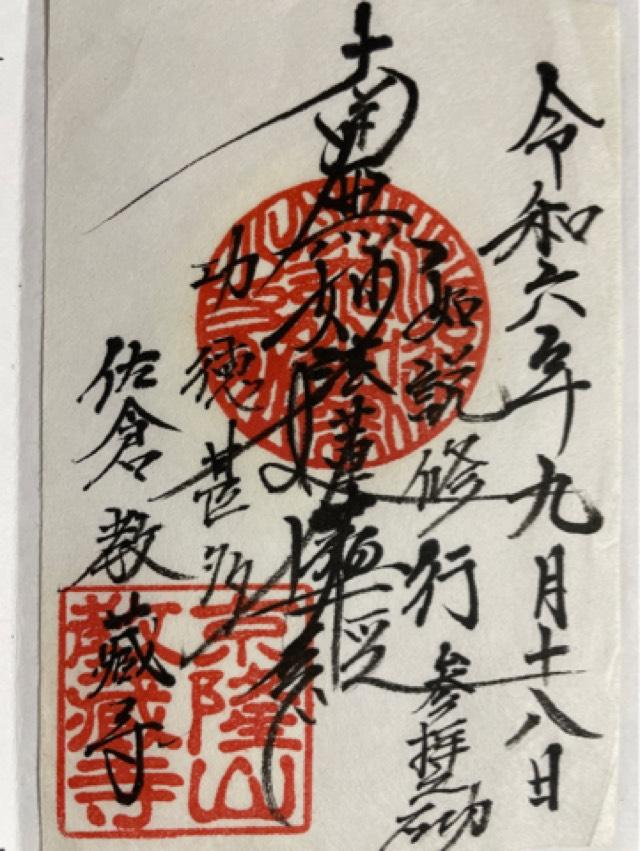 令和六年九月十八日
如説修行
参拝
南無妙法蓮華経
功徳甚多
佐倉教藏寺
京隆山
教藏寺